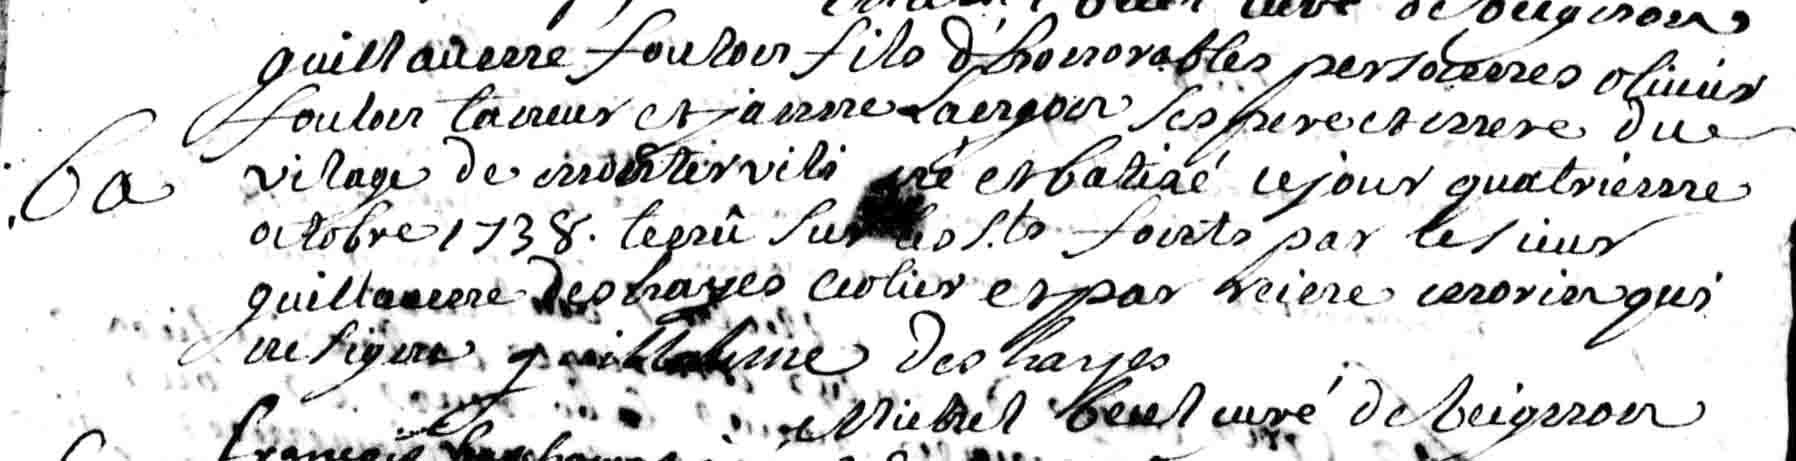 curé de beignon
guillaume foulon fils d'honorables personnes olivier
foulon taneur et janne Laergon ses pere et mere du
ba
vilage de montervili né et batizé ce jour quatriéme
octobre 1738. tenû sur les Sts fonts par le sieur
guillaume deshayes ecolier et par reiene morin qui
ne signe guillaume des hayes
Michel beul curé de beignon
françois